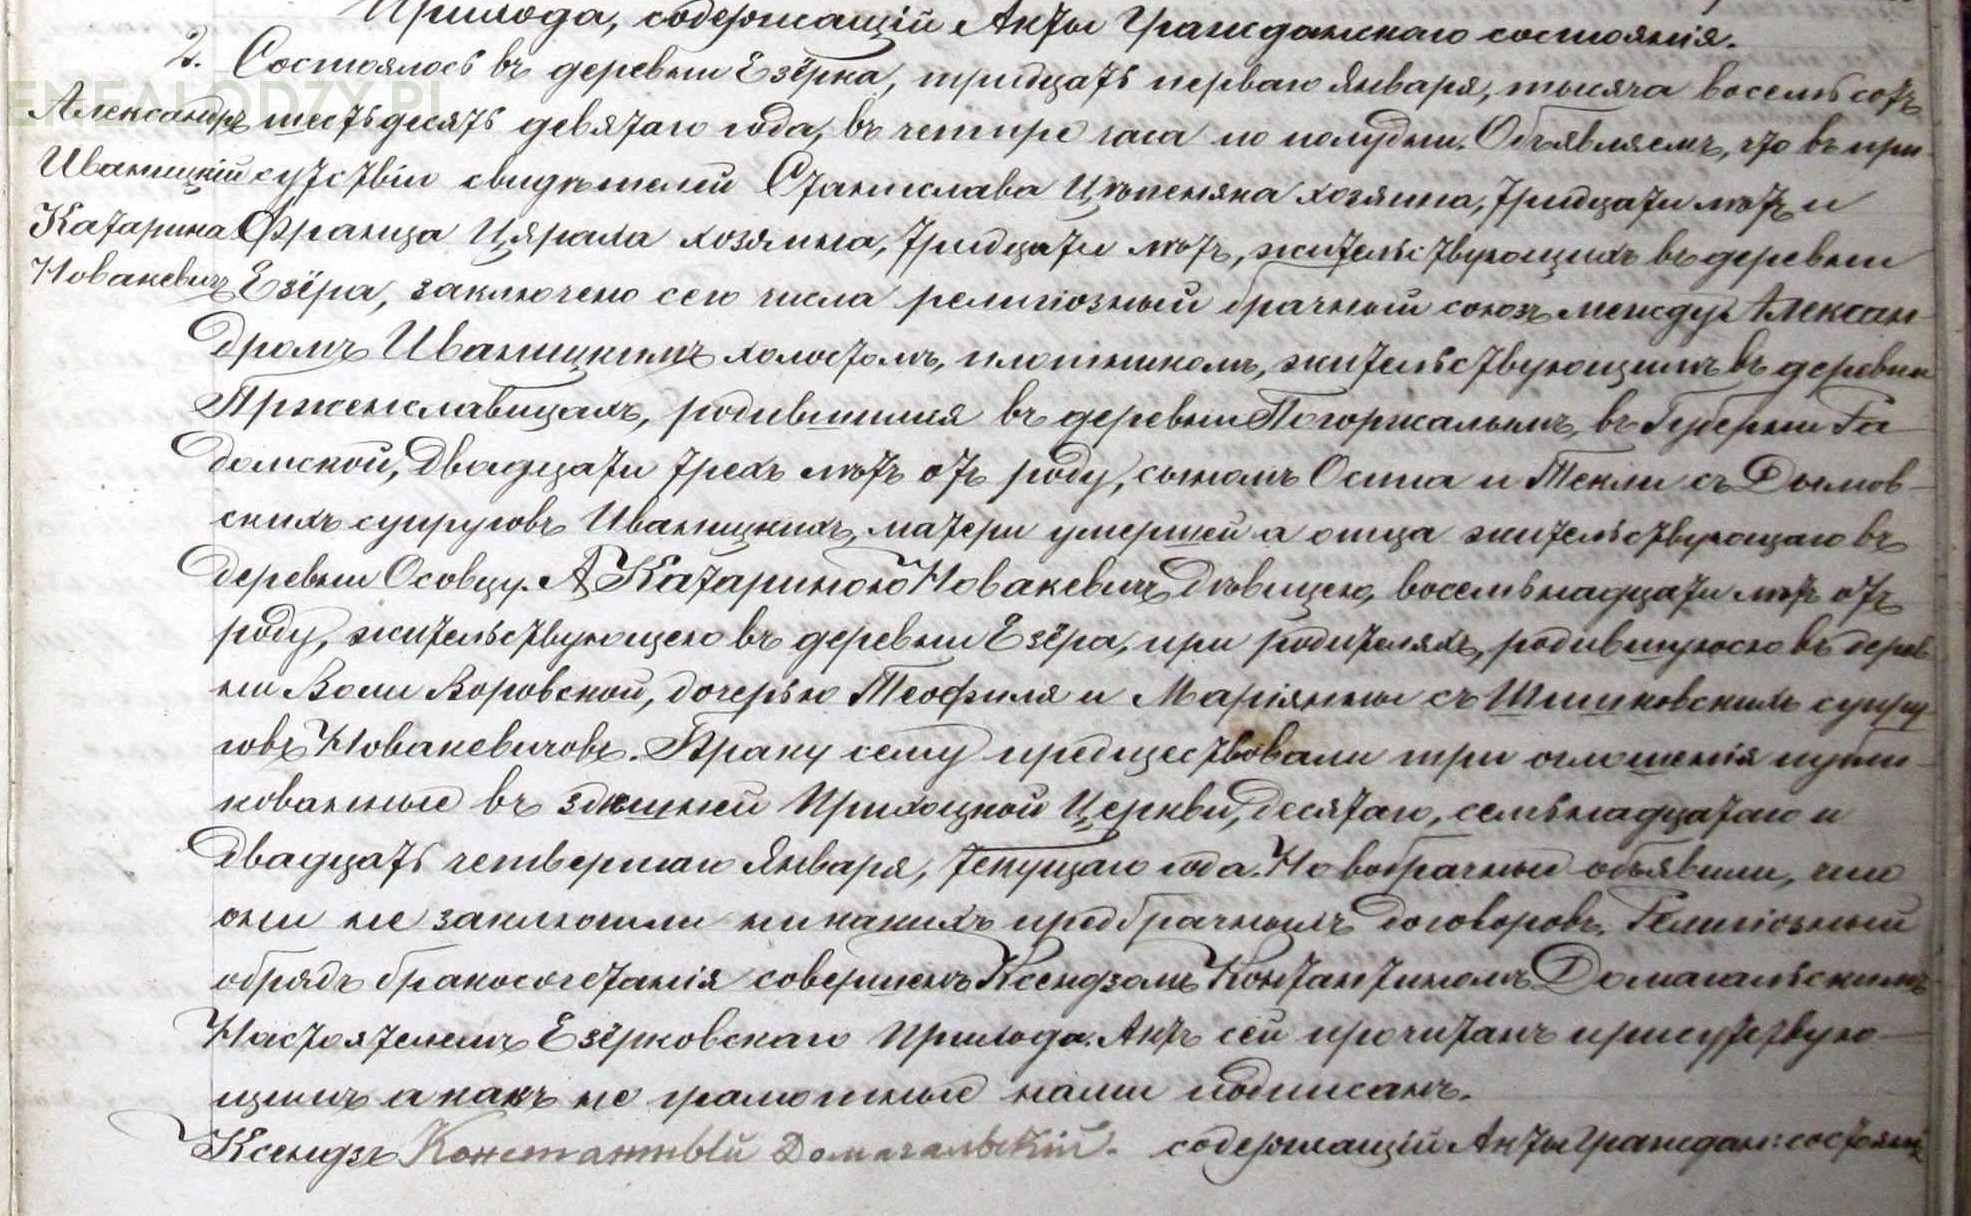 Прихода, содержащій Акты Гражданскаго состоянія.
2. Состоялось въ деревни Езёрка, тридцать перваго Января, тысяча восемьсотъ
GENEALODZY.PL
Александръ шестьдесять девятаго года, въ четыре часа по полудни. Объявляемъ, что въ при-
Иваницкій сутствіи свидѣтелей Станислава Цѣпеняка хозяина, тридцати лѣтъ и
Катарина Франца Цяраха хозяина, тридцати лѣтъ, жительствующихъ въ деревни
Новакевичъ Езёра, заключено сего числа религіозный брачный союзъ между Алексан-
дромъ Иваницкимъ холостомъ, плотникомъ, жительствующимъ въ деревни
Прженславицахъ, родившимся въ деревни Погоржальымъ, въ Губерни Ра-
домской, двадцати трехъ лѣтъ отъ роду, сыномъ Осипа и Текли съ Дымов-
скихъ супруговъ Иваницкихъ, матери умершей а отца жительствующаго въ
деревни Осовцу. А Катариною Новакевичъ дѣвицею, восемьнадцати лѣтъ отъ
роду, жительствующею въ деревни Езёра, при родителяхъ, родившуюсю въ дерев-
ни Воли Воровской, дочерью Теофиля и Маріянны съ Шишковскихъ супру-
говъ Новакевичовъ. Браку сему предшествовали три оглошенія публи-
кованные въ здѣшней Приходцкой Церкви, десятаго, семьнадцатаго и
двадцать четвертаго Января, текущаго года. Новобрачные объявили, что
они не заключили никакихъ предбрачныхъ договоровъ. Религіозный
обрядъ бракосочетанія совершенъ Ксендзомъ Контантиномъ Домагальскимъ
Настоятелемъ Езёрковскаго Прихода. Актъ сей прочитанъ присутствую-
щимъ а какъ не грамотные нами подписанъ.
Ксендзъ Константый Домагальскій. содержащій Акты Граждан: состояні